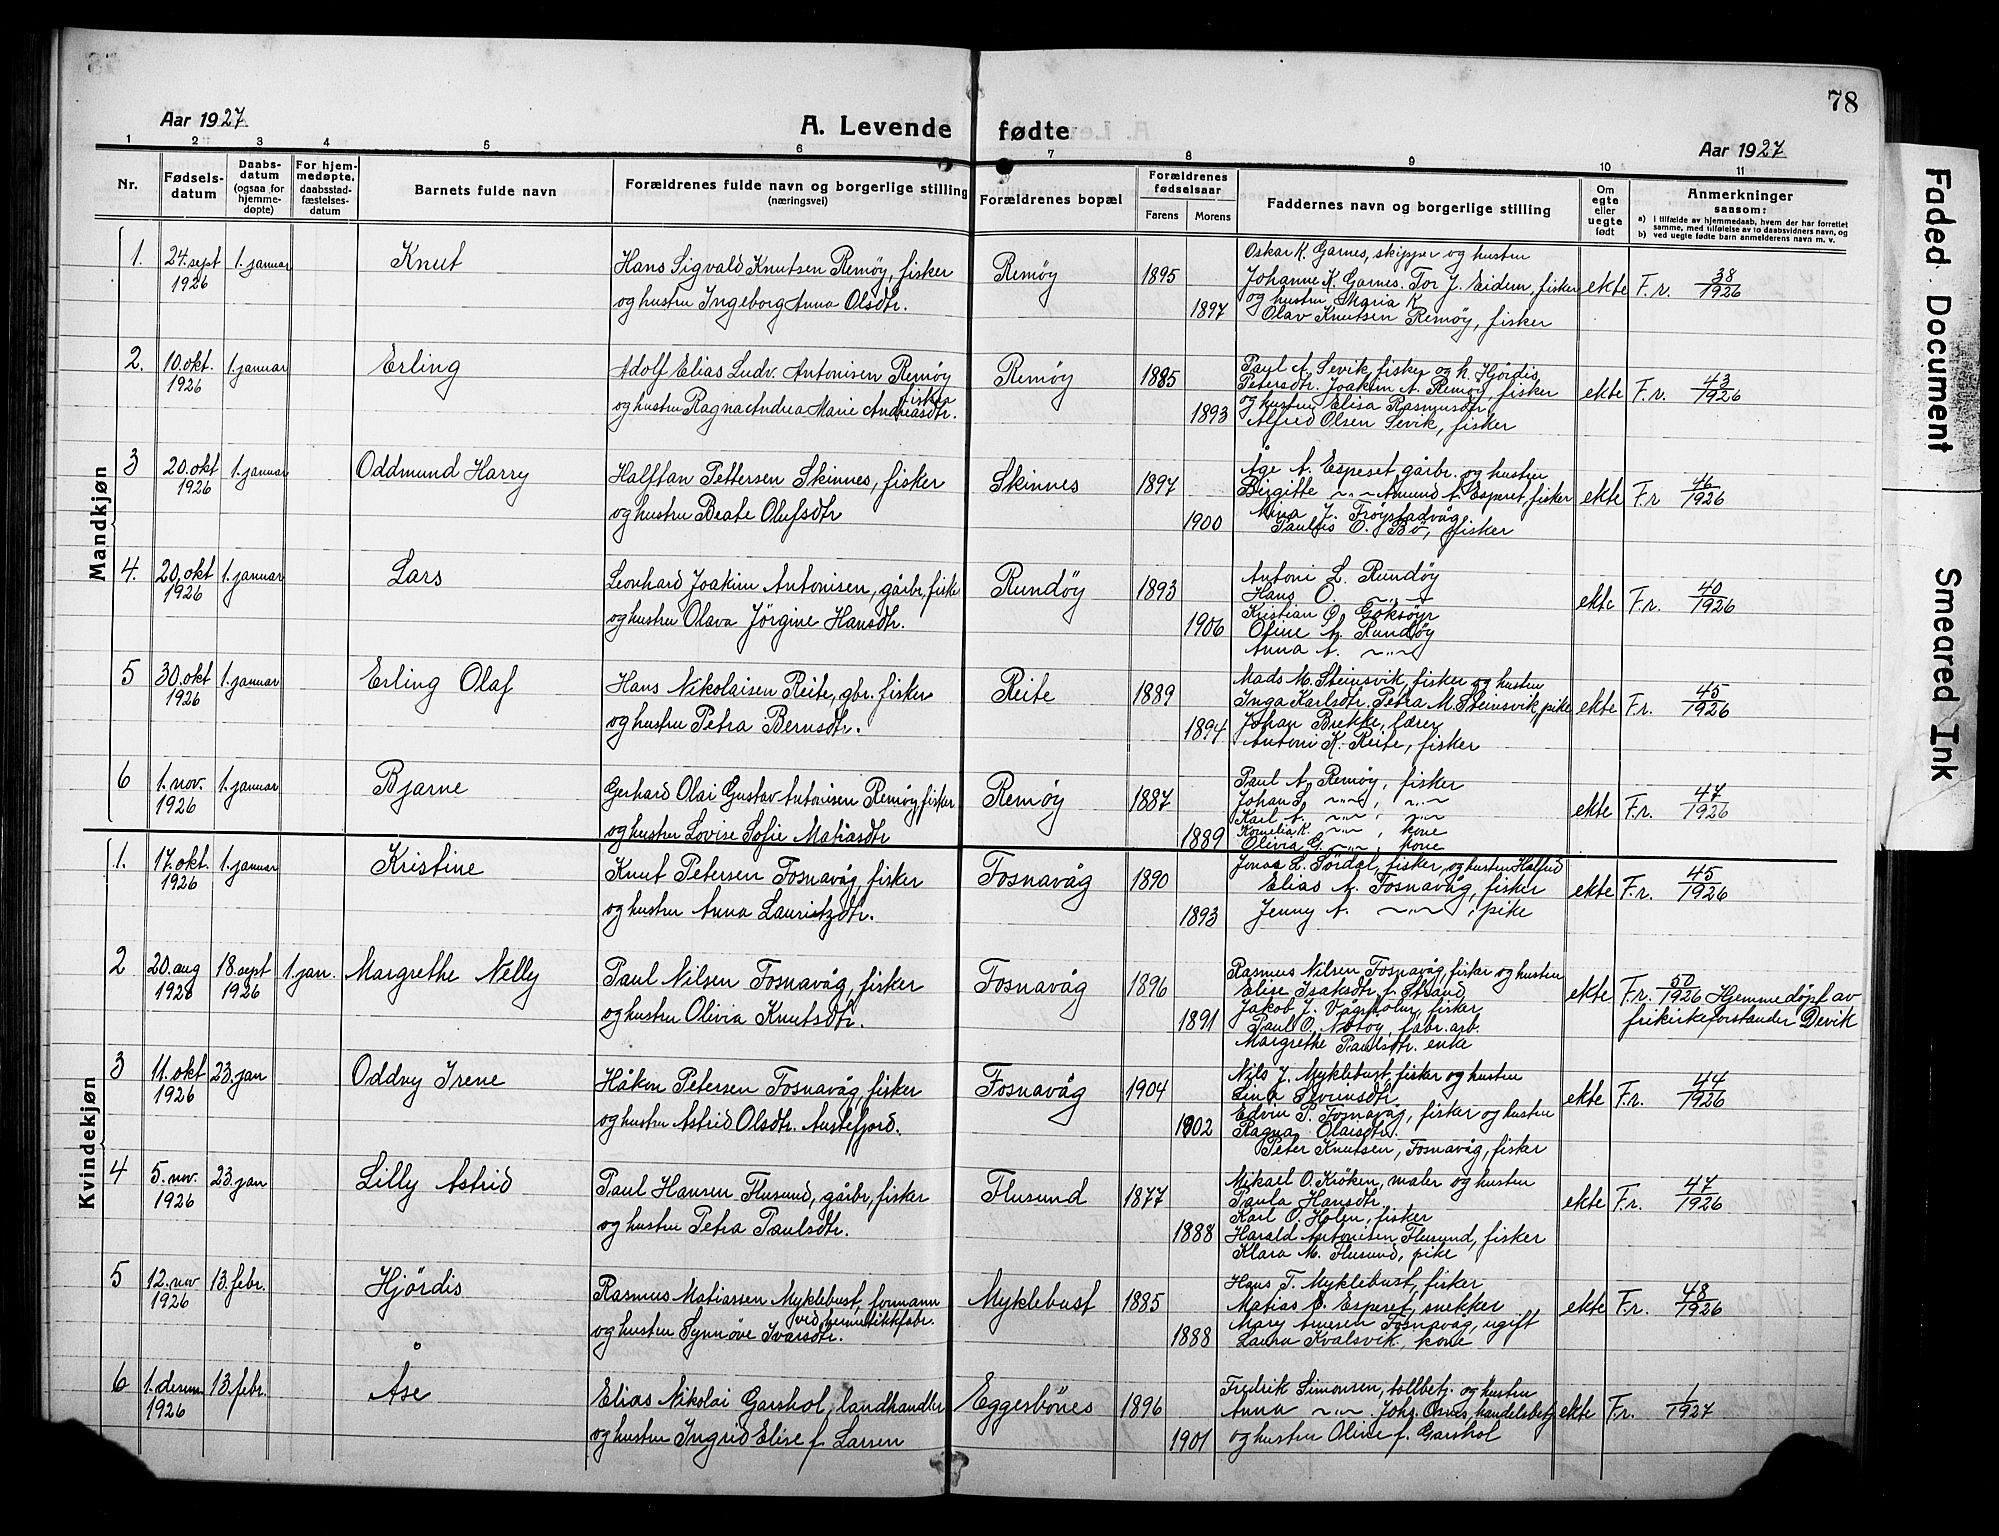 78
Aar 1927
A. Levende fødte
Aar 1927
1 2 3 4 5 6 7 8 9 10 11
Nr.
Fødsels-
datum
Daabs-
datum
(ogsaa for
hjemme-
døpte)
For hjem-
medøpte,
daabsstad-
fæstelses-
datum
Barnets fulde navn
Forældrenes fulde navn og borgerlige stilling
(næringsvei)
Forældrenes bopæl
Forældrenes
fødselsaar
Farens Morens
Faddernes navn og borgerlige stilling
Om
egte
eller
uegte
født
Anmerkninger
saasom:
a) i tilfælde av hjemmedaab, hvem der har forrettet
samme, med tilføielse av to daabsvidners navn, og
b) ved uegte født barn anmelderens navn m. v.
Mandkjøn
1. 24. sept 1926 1. januar Knut
Hans Sigvald Knutsen Remøy, fisker
og hustru Ingeborg Anna Olsdtr.
Remøy 1895 1897
Oskar K. Garnes, skipper og hustru
Johanne K. Garnes. Tor J. Eidem, fisker
og hustru Maria K
Olav Knutsen Remøy, fisker
ekte F.r. 38/1926
2. 10. okt. 1926 1. januar Erling
Adolf Elias Ludv. Antonisen Remøy
fisker
og hustru Ragna Andrea Marie Andreasdtr.
Remøy 1885 1893
Paul A. Sevik, fisker og h. Hjördis
Petersdtr. Joakim A. Remøy, fisker
og hustru Elisa Rasmusdtr,
Alfred Olsen Sevik, fisker
ekte F.r. 43/1926
3 20. okt 1926 1. januar Oddmund Harry
Halftan Pettersen Skinnes, fisker
og hustru Beate Olufsdtr
Skinnes 1897 1900
Åge A. Espeset, gårbr. og hustru
Birgitte ~"~ Amund A. Espeset, fisker
J. Frøystadvåg
O. Bö, fisker
ekte F.r. 46/1926
4. 20. okt 1926 1. januar Lars
Leonhard Joakim Antonisen, gårbr, fiske
og hustru Olava Jörgine Hansdtr.
Rundöy 1893 1906
Antoni L. Rundöy
Hans O. ~"~
Kristian O. Goksöyr
Ofine A. Rundöy
Anna A. ~"~
ekte F.r. 40/1926
5 30. okt 1926 1. januar Erling Olaf
Hans Nikolaisen Reite, gbr. fisker
og hustru Petra Berntsdtr.
Reite 1889 1894
Mads M. Steinsvik, fisker og hustru
Inga Karlsdtr. Petra M. Steinsvik, pike
Johan Brekke, lærer
Antoni K. Reite, fisker
ekte F.r. 45/1926
6 1. nov. 1926 1. januar Bjarne
Gerhard Olai Gustav Antonisen Remöy, fisker
og hustru Lovise Sofie Matiasdtr
Remöy 1887 1889
Paul A. Remöy, fisker
Johan S. ~"~, ~"~
Karl A. ~"~, ~"~
Kornelia K. ~"~, kone
Olivia G. ~"~, kone
ekte F.r. 47/1926
Kvindekjøn
1. 17. okt. 1926 1. januar Kristine
Knut Petersen Fosnavåg, fisker
og hustru Anna Lauritzdtr.
Fosnavåg 1890 1893
Jonas L. Sördal, fisker, og hustru Halfrid
Elias A. Fosnavåg, fisker
Jenny A. ~"~, pike
ekte F.r. 45/1926
2 20. aug 1926 18. sept 1926 1. jan. Margrethe Nelly
Paul Nilsen Fosnavåg, fisker
og hustru Olivia Knutsdtr.
Fosnavåg 1896 1891
Rasmus Nilsen Fosnavåg, fisker og hustru
Elise Isaksdtr f. Strand
Jakob J. Vågsholm, fisker
Paul O. Nötöy, fabr. arb.
Margrethe Paulsdtr. enke
ekte F.r. 50/1926 Hjemmedöpt av
frikirkeforstander Devik
3 11. okt 1926 23. jan Oddny Irene
Håkon Petersen Fosnavåg, fisker
og hustru Astrid Olsdtr. Austefjord.
Fosnavåg 1904 1902
Nils J. Myklebust, fisker og hustru
Lina Severinsdtr.
Edvin P. Fosnavåg, fisker og hustru
Ragna Olaisdtr.
Peter Knutsen, Fosnavåg, fisker
ekte F.r. 44/1926
4 5. nov. 1926 23. jan Lilly Astrid
Paul Hansen Flusund, gårbr, fisker
og hustru Petra Paulsdtr.
Flusund 1877 1888
Mikael O. Kröken, maler og hustru
Paula Hansdtr.
Karl O. Holen, fisker
Harald Antonisen Flusund, fisker
Klara M. Flusund, pike
ekte F.r. 47/1926
5 12. nov 1926 13. febr. Hjördis
Rasmus Matiassen Myklebust, formann
ved hermetikkfabr.
og hustru Synnöve Ivarsdtr.
Myklebust 1885 1888
Hans T. Myklebust, fisker
Matias C. Espeset, snekker
Mary Arnesen Fosnavåg, ugift
Laura Kvalsvik, kone
ekte F.r. 48/1926
6 1. desem. 1926 13. febr. Åse
Elias Nikolai Garshol, landhandler
og hustru Ingrid Elise f. Larsen
Eggesbönes 1896 1901
Fredrik Simonsen, tollbetj. og hustru
Anna ~"~. Johs. Osnes, handelsbetj.
og hustru Oline f. Garshol
ekte F.r. 1/1927
Faded Document
Smeared Ink